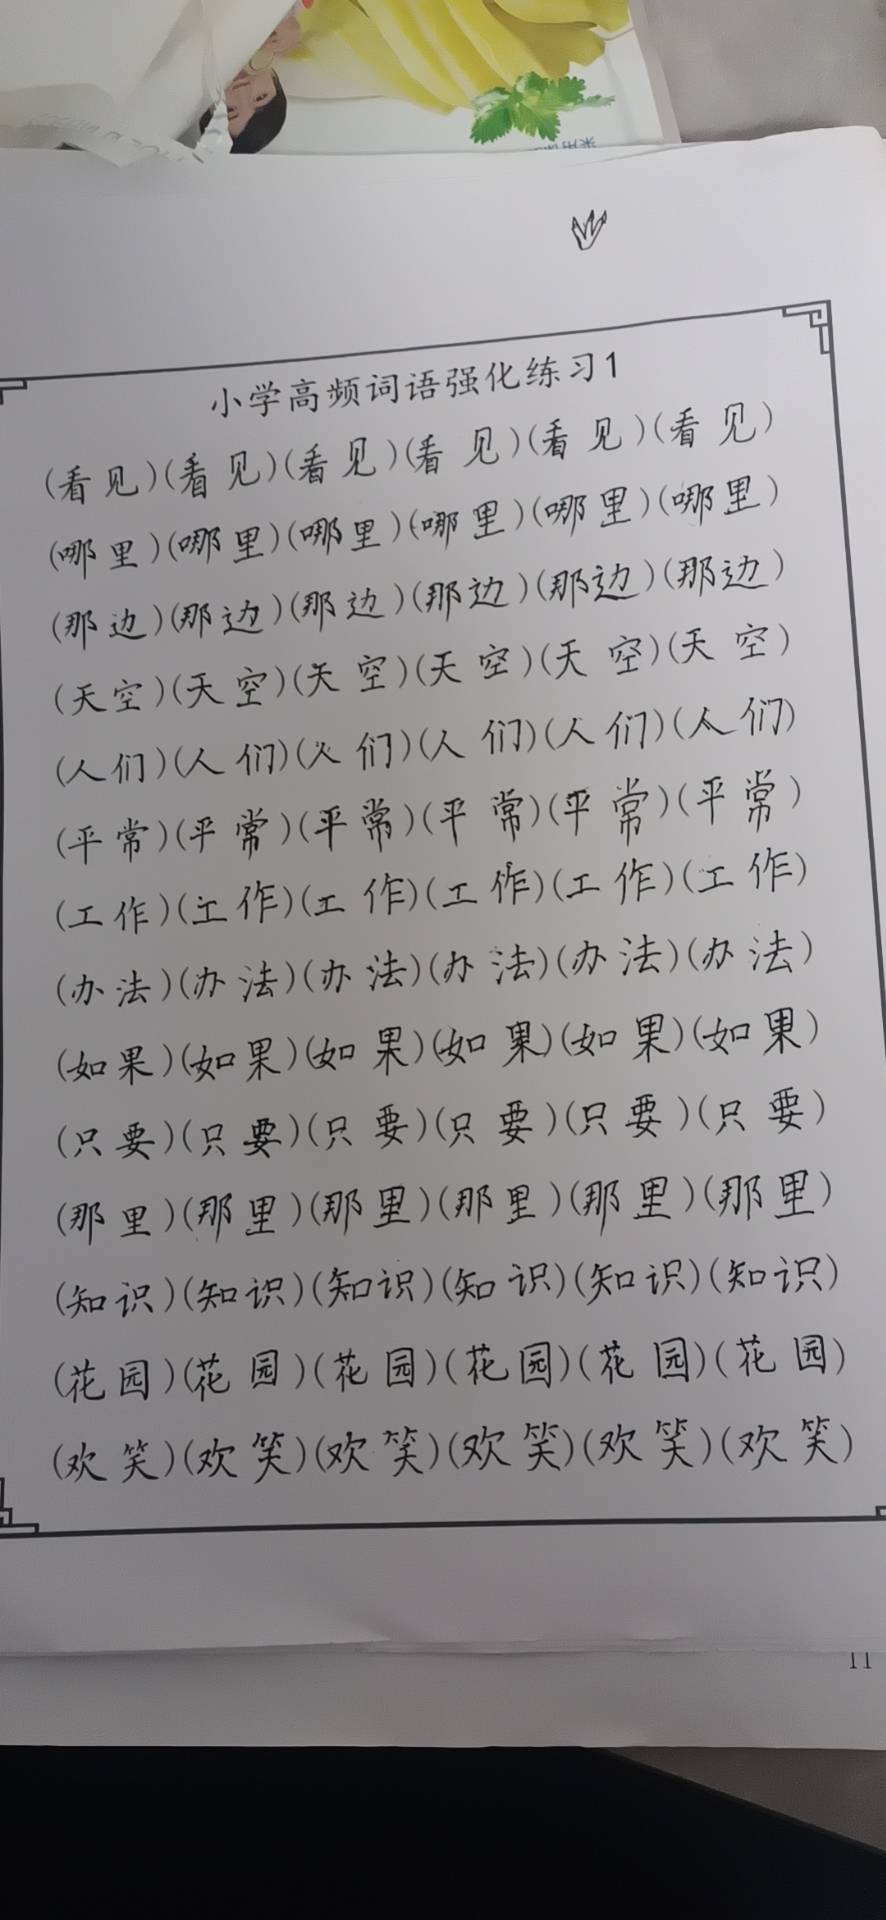 小学高频词语强化练习1
(看见)(看见)(看见)(看见)(看见)(看见)
(哪里)(哪里)(哪里)(哪里)(哪里)(哪里)
(那边)(那边)(那边)(那边)(那边)(那边)
(天空)(天空)(天空)(天空)(天空)(天空)
(人们)(人们)(人们)(人们)(人们)(人们)
(平常)(平常)(平常)(平常)(平常)(平常)
(工作)(工作)(工作)(工作)(工作)(工作)
(办法)(办法)(办法)(办法)(办法)(办法)
(如果)(如果)(如果)(如果)(如果)(如果)
(只要)(只要)(只要)(只要)(只要)(只要)
(那里)(那里)(那里)(那里)(那里)(那里)
(知识)(知识)(知识)(知识)(知识)(知识)
(花园)(花园)(花园)(花园)(花园)(花园)
(欢笑)(欢笑)(欢笑)(欢笑)(欢笑)(欢笑)
11